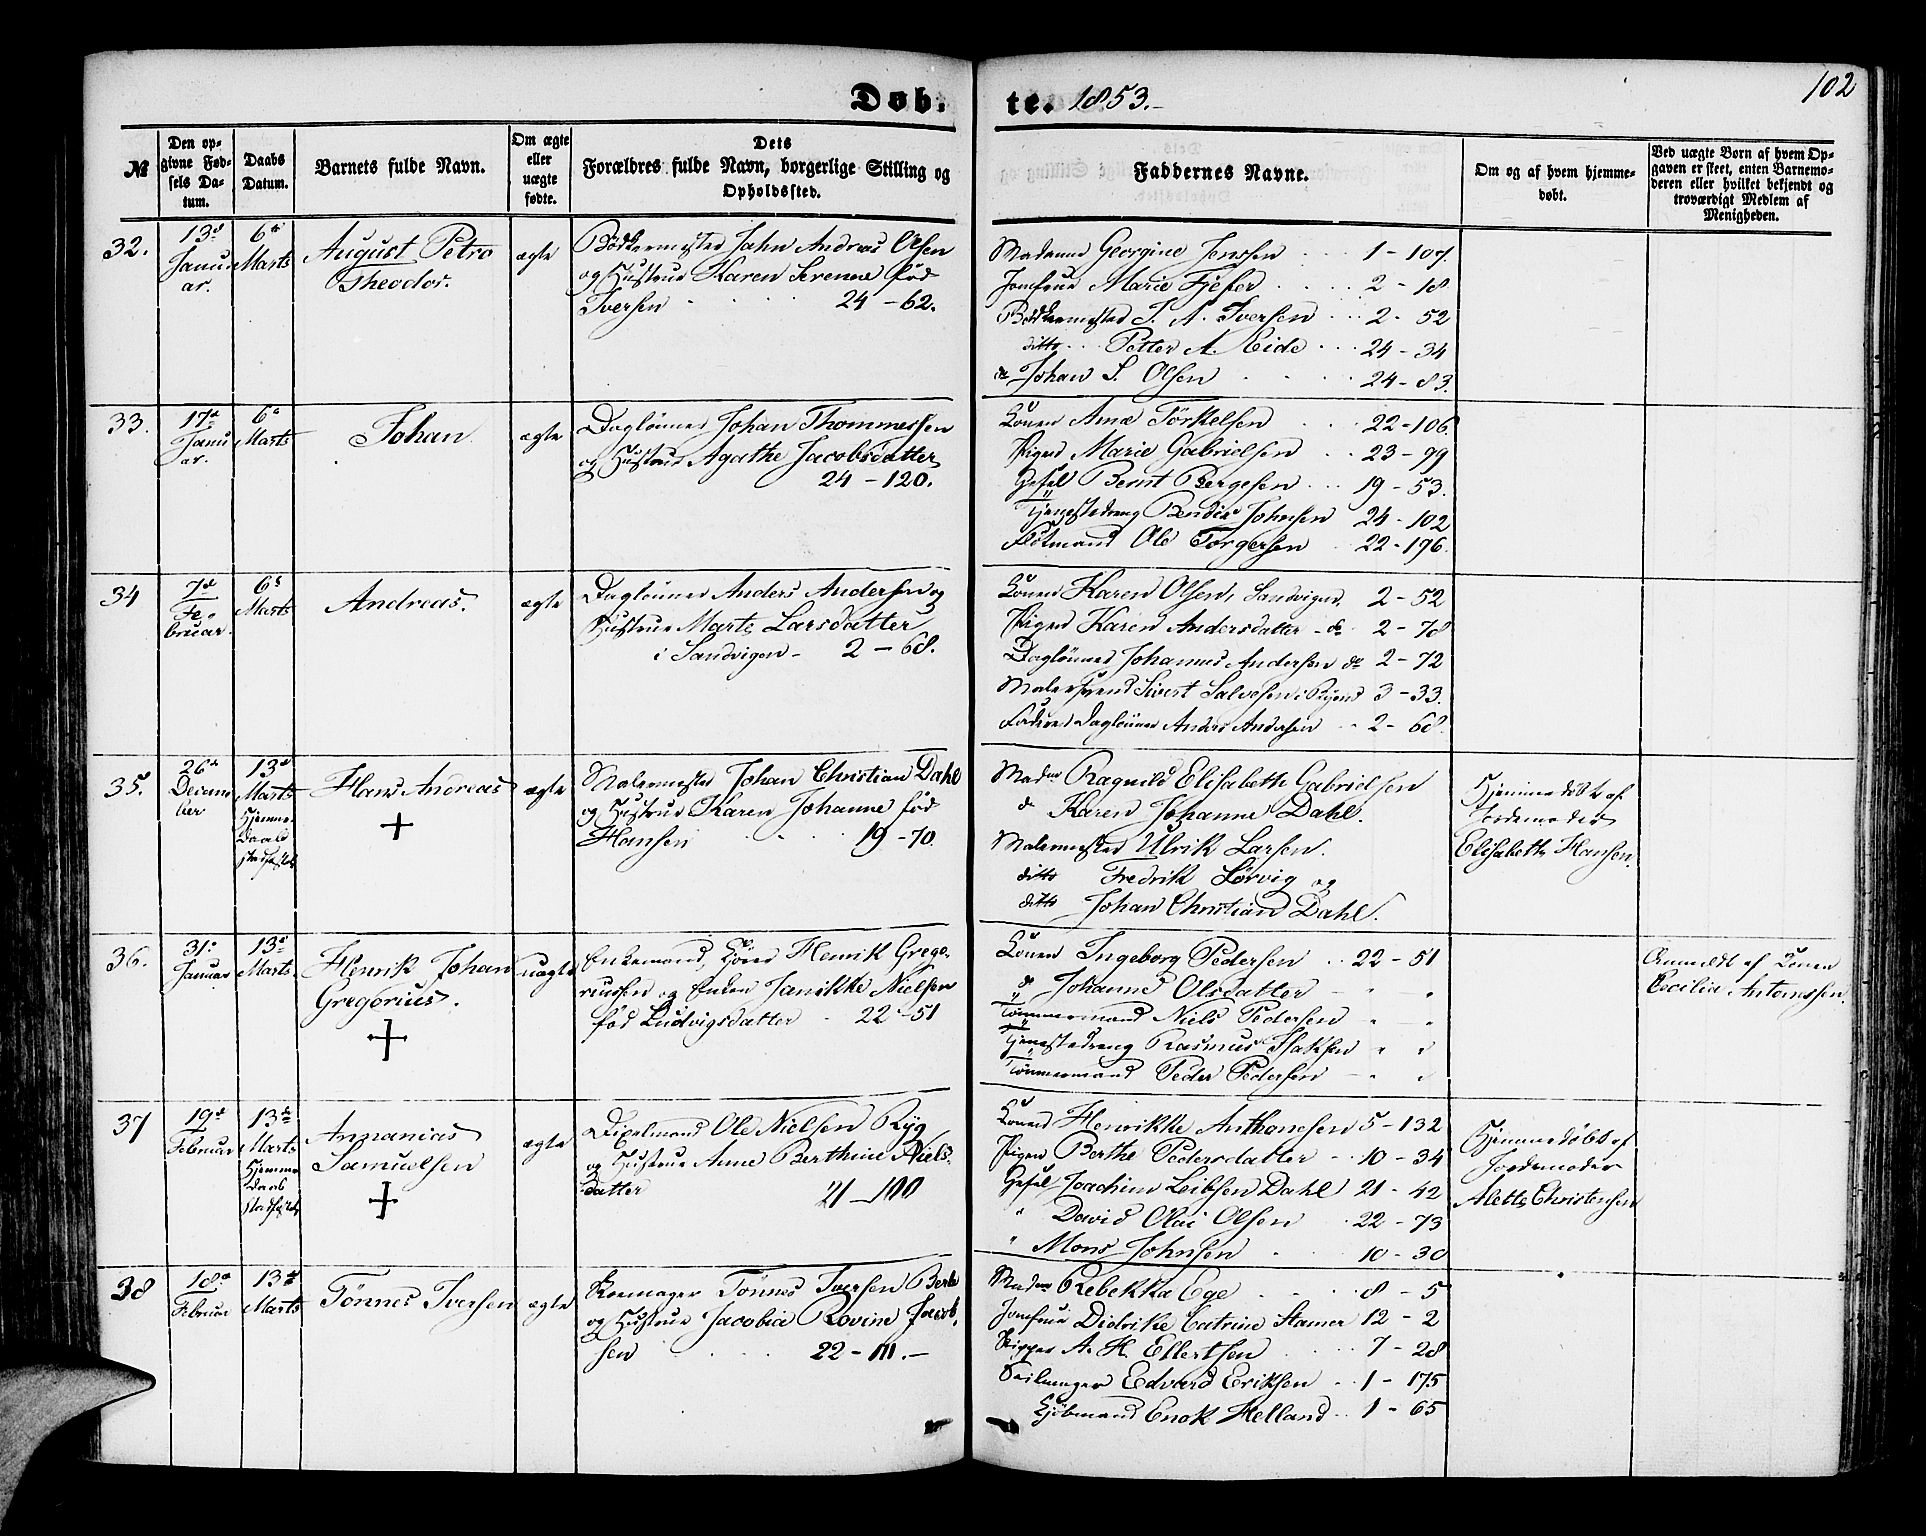 Døb.
te. 1853.-
102
№
Den op-
givne Fød-
sels Da-
tum.
Daabs
Datum.
Barnets fulde Navn.
Om ægte
eller
uægte
fødte.
Dets
Forældres fulde Navn, borgerlige Stilling og
Opholdssted.
Faddernes Navne.
Om og af hvem hjemme-
døbt.
Ved uægte Børn af hvem Op-
gaven er skeet, enten Barnemo-
deren eller hvilket bekjendt og
troværdigt Medlem af
Menigheden.
32.
13d
Janu-
ar.
6te
Marts
August Petro
Theodor.
ægte
Bødkermester Jahn Andreas Olsen
og Hustrue Karen Serenne fød
Iversen 24 - 62.
Madame Georgine Jenssen 1 - 107.
Jomfrue Marie Fjeser 2 - 18
Bødkermester I. A. Iversen 2 - 52
ditto Petter A. Eide 24 - 34
do Johan S. Olsen 24 - 83.
33.
17d
Janu
ar.
6d
Marts
Johan
ægte
Dagløner Johan Thommessen
og Hustrue Agathe Jacobsdatter
24 - 120.
Konen Ane Törkelsen 22 - 106
Pigen Marie Gabrielsen 23 - 99
Gesel Bernt Bergesen 19 - 53.
Tjenestedreng Bendix Johnsen 24 - 102
Flotmand Ole Torgersen 22 - 196.
34
7d
Fe-
bruar.
6d
Marts
Andreas.
ægte
Dagløner Anders Andersen og
Hustrue Marte Larsdatter
i Sandvigen - 2 - 68.
Konen Karen Olsen, Sandvigen, 2 - 52
Pigen Karen Andersdatter - do 2 - 78
Dagløner Johannes Andersen do 2 - 72
Malersvend Sivert Salvesen i Byen 3 - 33.
Faderen Dagløner Anders Andersen 2 - 68.
35.
26d
Decem
ber
13d
Marts
Hjemme-
Daab
stadfæstet
Hans Andreas
+
ægte
Malermester Johan Christian Dahl
og Hustrue Karen Johanne fød
Hansen 19 - 70.
Madme Ragnild Elisabeth Gabrielsen
do Karen Johanne Dahl.
Malermester Ulrik Larsen.
ditto Fredrik Lørvig og
ditto Johan Christian Dahl.
Hjemmedøbt af
Jordemoder
Elisabeth Hansen.
36.
31.
Januar
13d
Marts.
Henrik Johan
Gregorius.
+
uægte
Enkemand, Kjører Henrik Grego-
riussen og Enken Janikke Nielsen
fød Ludvigsdatter 22 - 51
Konen Ingeborg Pedersen 22 - 51
do Johanne Olsdatter - " "
Tømmermand Niels Pedersen - " "
Tjenestedreng Rasmus Isaksen " "
Tømmermand Peder Pedersen - " "
Anmeldt af Konen
Cecilia Antonessen.
37
19d
Februar
13de
Marts
Hjemme
Daab
stadfæstet
Annanias
Samuelsen
+
ægte
Dixelmand Ole Nielsen Ryg
og Hustrue Anne Berthine Niels-
datter 21 - 100
Konen Henrikke Anthonesen 5 - 132
Pigen Berthe Pedersdatter 10 - 34
Gesel Joachim Leibsen Dahl 21 - 42
" David Olai Olsen 22 - 73
" Mons Johnsen 10 - 30
Hjemmedøbt af
Jordemoder
Alette Christensen
38
18d
Februar
13de
Marts
Tönnes Iversen
ægte
Skomager Tönnes Iversen Berle
og Hustrue Jacobia Rovine Jacob-
sen 22 - 111.-
Madme Rebekka Ege 8 - 5
Jomfrue Didrike Catrine Stamer 12 - 2
Skipper A. H. Ellertsen 7 - 28
Seilmager Edvard Eriksen 1 - 175
Kjøbmand Enok Helland 1 - 65